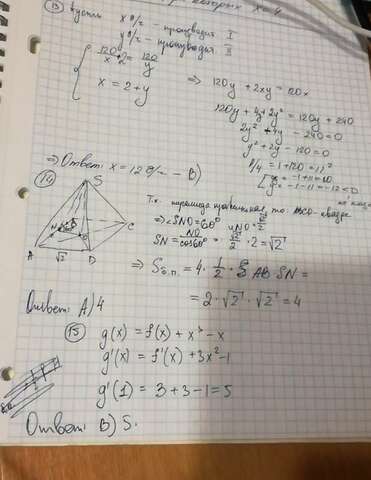 13) пусть x в/ч – производит I
y в/ч – производит II
120/x + 2 = 120/y
x = 2 + y
⇒ 120y + 2xy = 120x
120y + 4y + 2y² = 120y + 240
2y² + 4y - 240 = 0
y² + 2y - 120 = 0
D/4 = 1 + 120 = 11²
y = -1 + 11 = 10
y = -1 - 11 = -12 < 0
не подх
⇒ Ответ: x = 12 в/ч – B)
14)
S
A
B
C
D
N
O
√2
Т.к. пирамида правильная, то ABCD – квадрат
⇒ ∠SNO = 60° NO = √2/2
SN = NO/cos60° = √2/2 · 2 = √2
⇒ Sб.п. = 4 · 1/2 · AB · SN =
= 2 · √2 · √2 = 4
Ответ: A) 4
15) g(x) = f(x) + x³ - x
g'(x) = f'(x) + 3x² - 1
g'(1) = 3 + 3 - 1 = 5
Ответ: B) 5.